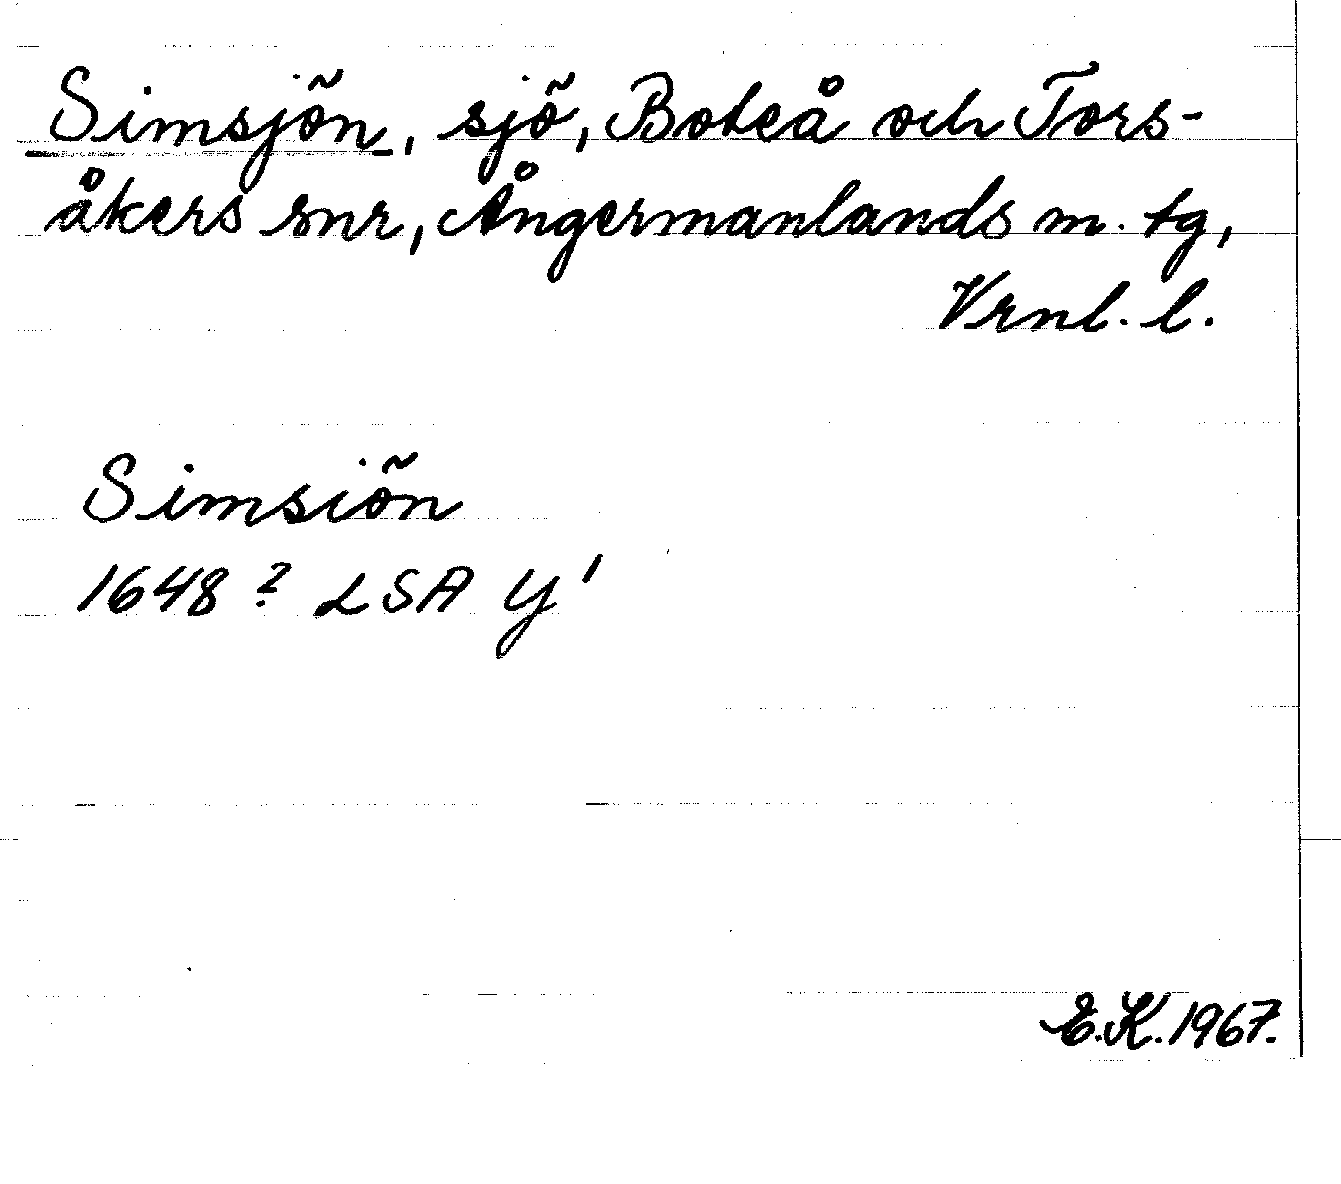 Simsjön, sjö, Boteå och Tors-
åkers snr, Ångermanlands m. tg,
Vrnl. l.
Simsiön
1648? LSA Y1
E.K. 1967.